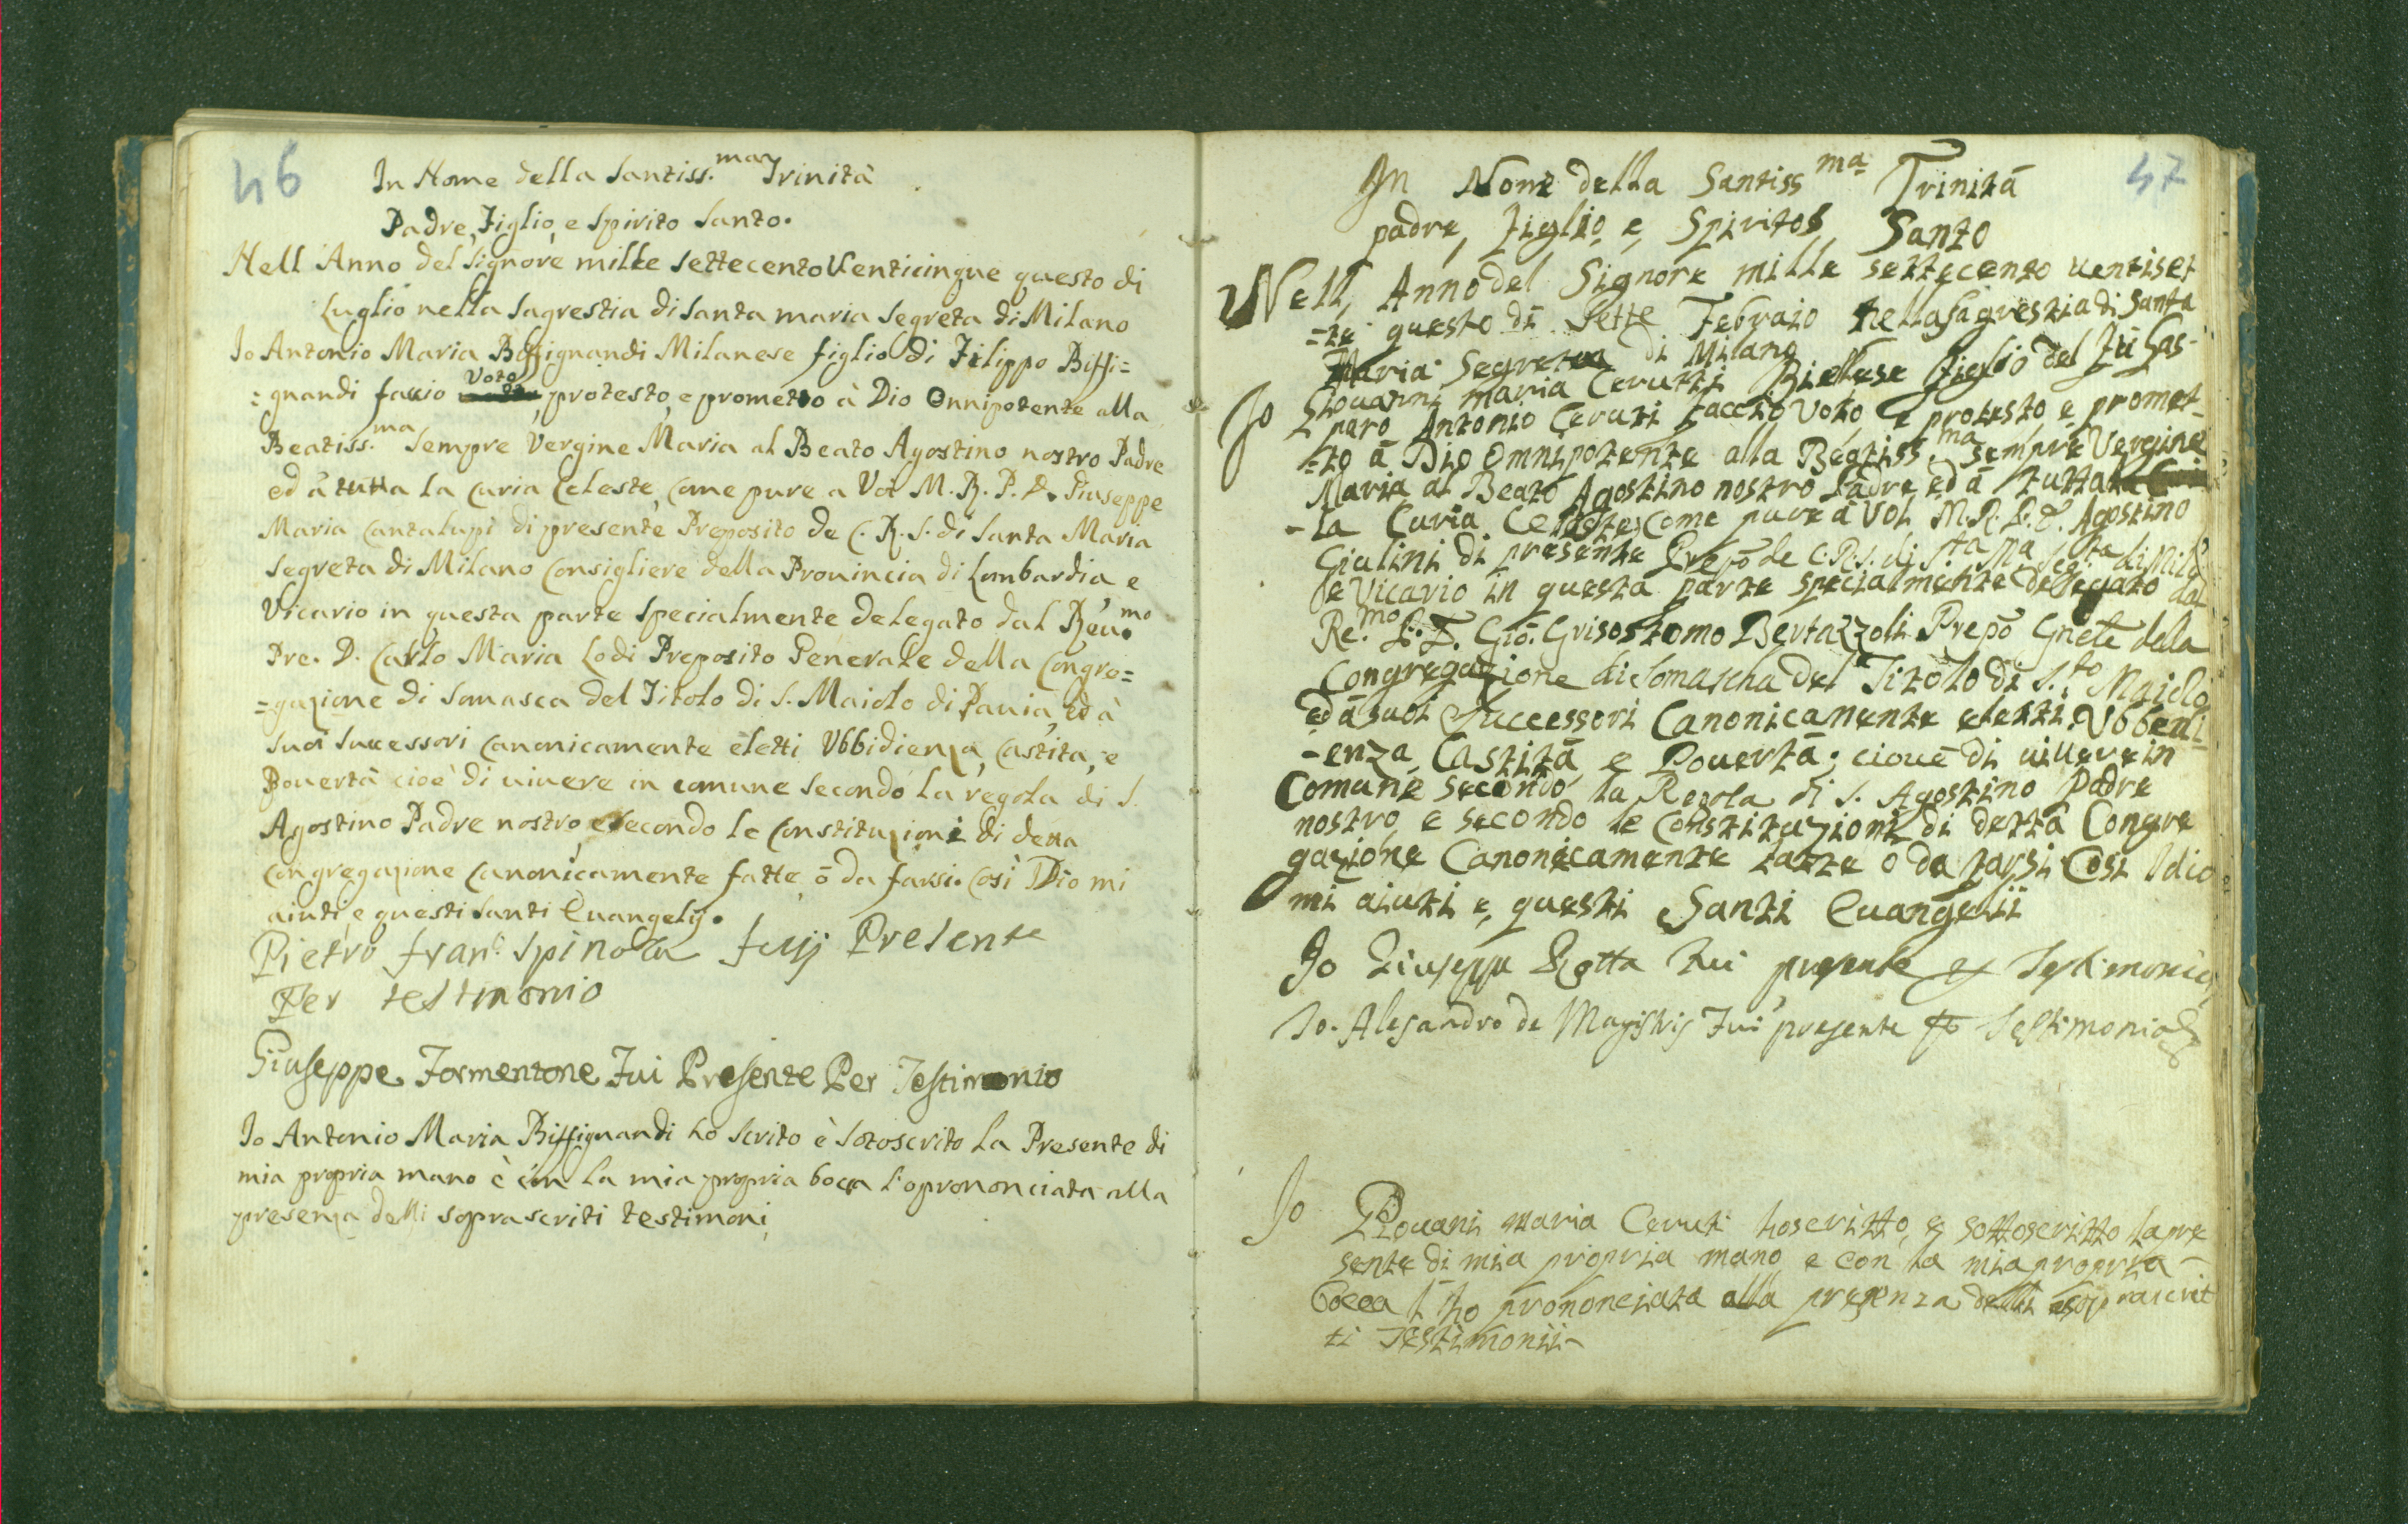 46
In Nome della Santiss.ma Trinità
Padre, Figlio, e Spirito Santo.
Nell Anno del Signore mille settecento Venticinque questo di
Luglio nella Sagrestia di Santa maria Segreta di Milano
Io Antonio Maria Biffignandi Milanese figlio di Filippo Biffi=
=gnandi faccio Voto, protesto, e prometto à Dio Onnipotente alla
Beatiss.ma Sempre Vergine Maria al Beato Agostino nostro Padre
ed à tutta la Curia Celeste, Come pure a Voi M. R. P. D. Giuseppe
Maria Cantalupi di presente Preposito de C. R. S. di Santa Maria
Segreta di Milano Consigliere della Prouincia di Lombardia, e
Vicario in questa parte Specialmente delegato dal Reu.mo
Pre. D. Carlo Maria Lodi Preposito Generale della Congre=
=gazione di Somasca del Titolo di S. Maiolo di Pauia, ed à
suoi Successori Canonicamente eletti Vbbidienza, Castita, e
Pouertà cioè di uiuere in comune secondo la regola di S.
Agostino Padre nostro, e secondo le Constituzioni di detta
Congregazione Canonicamente fatte, ò da farsi. Così Dio mi
aiuti, e questi Santi Euangelij.
Pietro fran.o Spinola fuij Presente
Per testimonio
Giuseppe Formentone Fui Presente Per Testimonio
Io Antonio Maria Biffignandi ho Scrito è Sotoscrito la Presente di
mia propria mano è con la mia propria boca l'o prononciata alla
presenza delli soprascriti testimoni
47
In Nome della Santissma Trinità
padre, Figlio, e, Spirito Santo
Nell, Anno del Signore mille settecento uentiset
=te questo dì Sette Febraio nella Sagrestia di Santa
Maria Segreta di Milano
Io Giouanni maria Cerutti Biellese Figlio del Fù Gas-
paro Antonio Ceruti faccio Voto, e protesto, e promet-
=to à Dio Omnipotente alla Beatiss.ma sempre Vergine
Maria al Beato Agostino nostro Padre ed à tutta
-la Curia Celeste, Come pure à Voi M. R. P. D. Agostino
Giulini di presente Prepo de C. R. S. di S.ta Ma Seg.ta di Milo
e Vicario in questa parte specialmente delegato dal
Re.mo P. D. Gio. Grisostomo Bertazzoli Prepo Gnēle della
Congregazione di Somascha del Titolo di S.to Maiolo
ed à suoi Successori Canonicamente eletti, Vbbedi-
-enza, Castità, e Pouertà; cioue di uiuere in
Comune secondo la Regola di S. Agostino Padre
nostro e secondo le Constituzioni di detta Congre
gazione Canonicamente fatte o da farsi Così Idio
mi aiuti e, questi Santi Euangelii
Io Giuseppe Rotta Fui presente Testimonio
Io. Alesandro de Magistris Fui presente Testimonio
Io Giouani maria Ceruti ho scritto, e sottoscritto la pre
sente di mia propria mano e con la mia propria
bocca l'ho prononciata alla presenza delli soprascrit
ti Testimonii